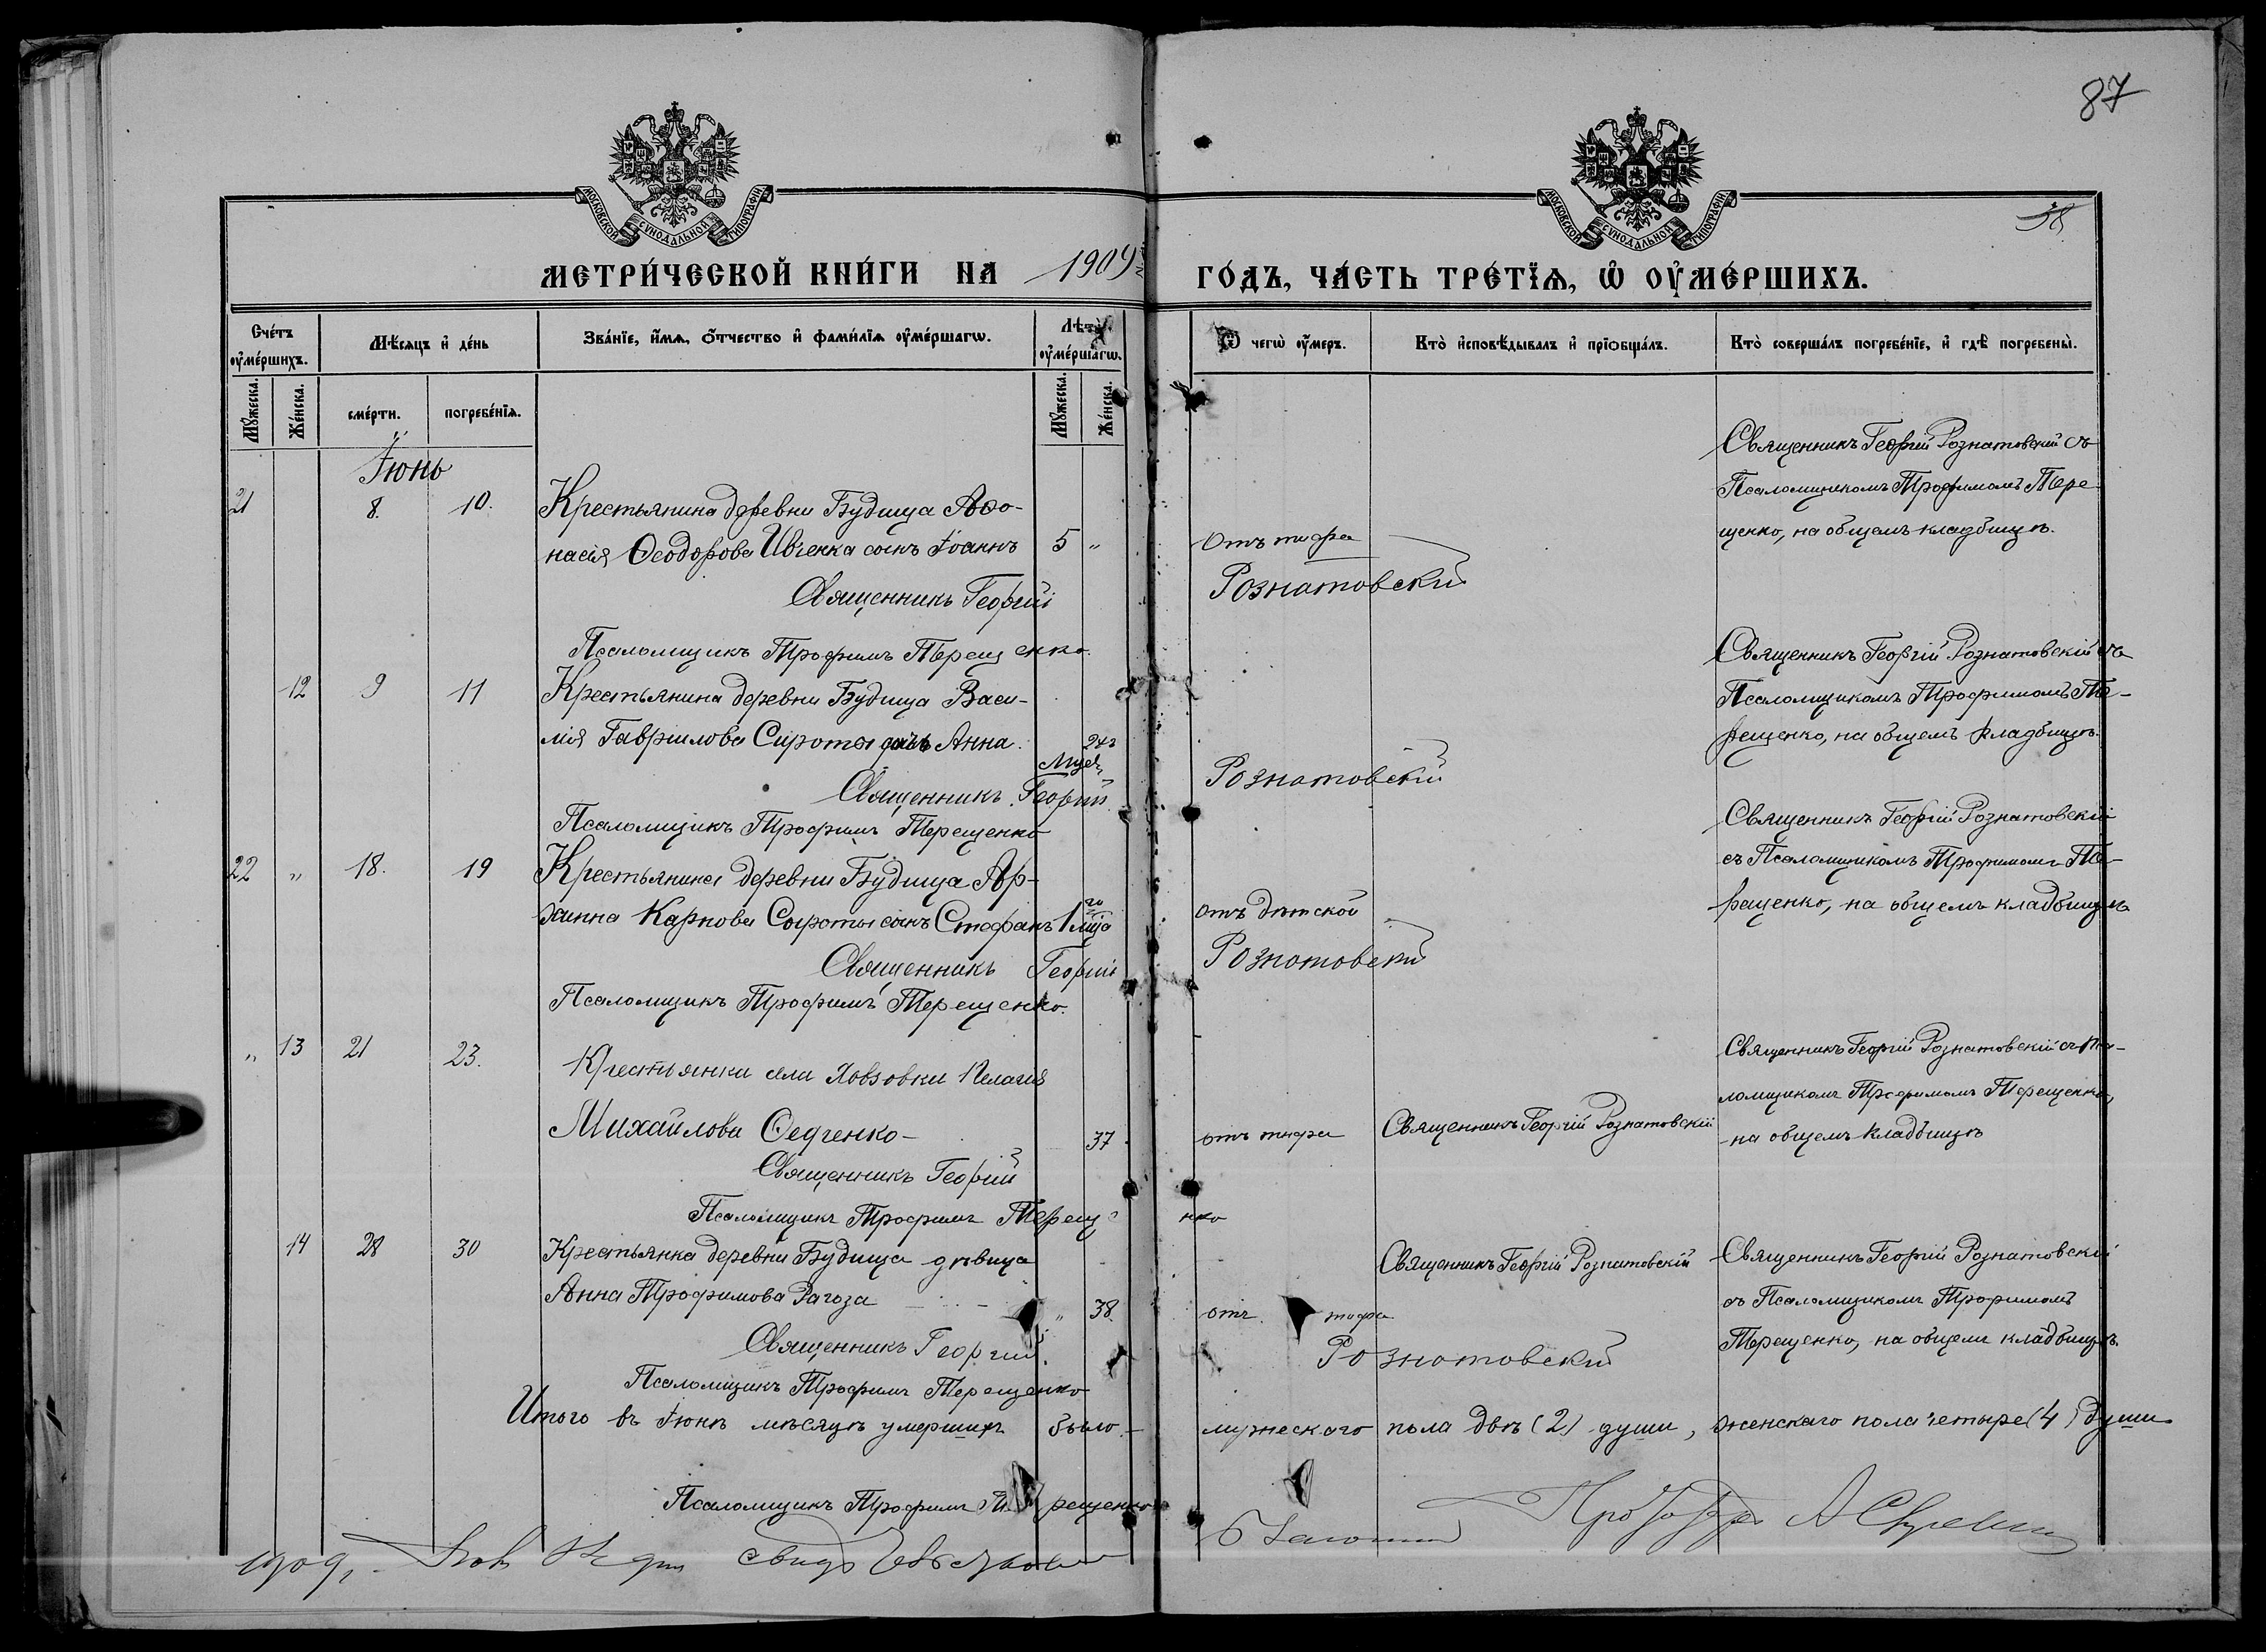 87
38
МОСКОВСКОЙ СѴНОДАЛЬНОЙ ТИПОГРАФІИ
МОСКОВСКОЙ СѴНОДАЛЬНОЙ ТИПОГРАФІИ
МЕТРИ́ЧЕСКОЙ КНИ́ГИ НА 1909 ГО́ДЪ, ЧА́СТЬ ТРЕ́ТЇѦ, Ѡ҆ ОУ҆МЕ́РШИХЪ.
Сче́тъ оу҆ме́ршихъ.
Мѣ́сяцъ и҆ де́нь
Зва́нїе, и҆́мѧ, ѻ҆́тчество и҆ фамі́лїѧ оу҆ме́ршагѡ.
Лѣта̀ оу҆ме́ршагѡ.
Ѿ чегѡ̀ оу҆́меръ.
Кто̀ и҆сповѣ́дывалъ и҆ прїѻбща́лъ.
Кто̀ соверша́лъ погребе́нїе, и҆ гдѣ̀ погребены̀.
Мꙋ́жеска.
Же́нска.
сме́рти.
погребе́нїѧ.
Мꙋ́жеска.
Же́нска.
Іюнь
21 8. 10. Крестьянина деревни Будища Аѳо-
насія Ѳеодорова Ивченка сынъ Іоаннъ 5 „ отъ тифа
Священникъ Георгій Рознатовскій съ
Псаломщикомъ Трофимомъ Тере
щенко, на общемъ кладбищѣ.
Священникъ Георгій Рознатовскій
Псаломщикъ Трофимъ Терещенко.
12 9 11 Крестьянина деревни Будища Васи-
лія Гаврилова Сироты дочь Анна.
Священникъ Георгій Рознатовскій съ
Псаломщикомъ Трофимомъ Те-
рещенко, на общемъ кладбищѣ.
Священникъ Георгій Рознатовскій
Псаломщикъ Трофимъ Терещенко
22 „ 18. 19 Крестьянина деревни Будища Ар-
хипа Карпова Сироты сынъ Стефанъ 1 го мца отъ дѣтской
Священникъ Георгій Рознатовскій
съ Псаломщикомъ Трофимомъ Те-
рещенко, на общемъ кладбищѣ
Священникъ Георгій Рознатовскій
Псаломщикъ Трофимъ Терещенко.
„ 13 21 23. Крестьянки села Ховзовки Пелагія
Михайлова Ѳедченко- 37 отъ тифа Священникъ Георгій Рознатовскій
Священникъ Георгій Рознатовскій съ Пса-
ломщикомъ Трофимомъ Терещенко,
на общемъ кладбищѣ
Священникъ Георгій
Псаломщикъ Трофимъ Терещенко
14 28 30 Крестьянка деревни Будища дѣвица
Анна Трофимова Рагоза „ 38. отъ тифа Священникъ Георгій Рознатовскій
Священникъ Георгій Рознатовскій
съ Псаломщикомъ Трофимомъ
Терещенко, на общемъ кладбищѣ.
Священникъ Георгій Рознатовскій
Псаломщикъ Трофимъ Терещенко
Итого въ Іюнѣ мѣсяцѣ умершихъ было – мужескаго пола двѣ (2) души, женскаго пола четыре (4) души
Псаломщикъ Трофимъ Терещенко
1909